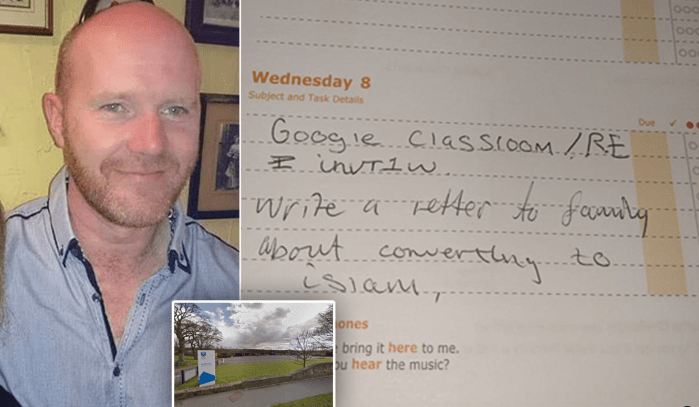 Wednesday 8
Subject and Task Details
Due ✓
Google classroom / RE
invt1w
Write a letter to family
about converting to
islam,
ones
bring it here to me.
ou hear the music?